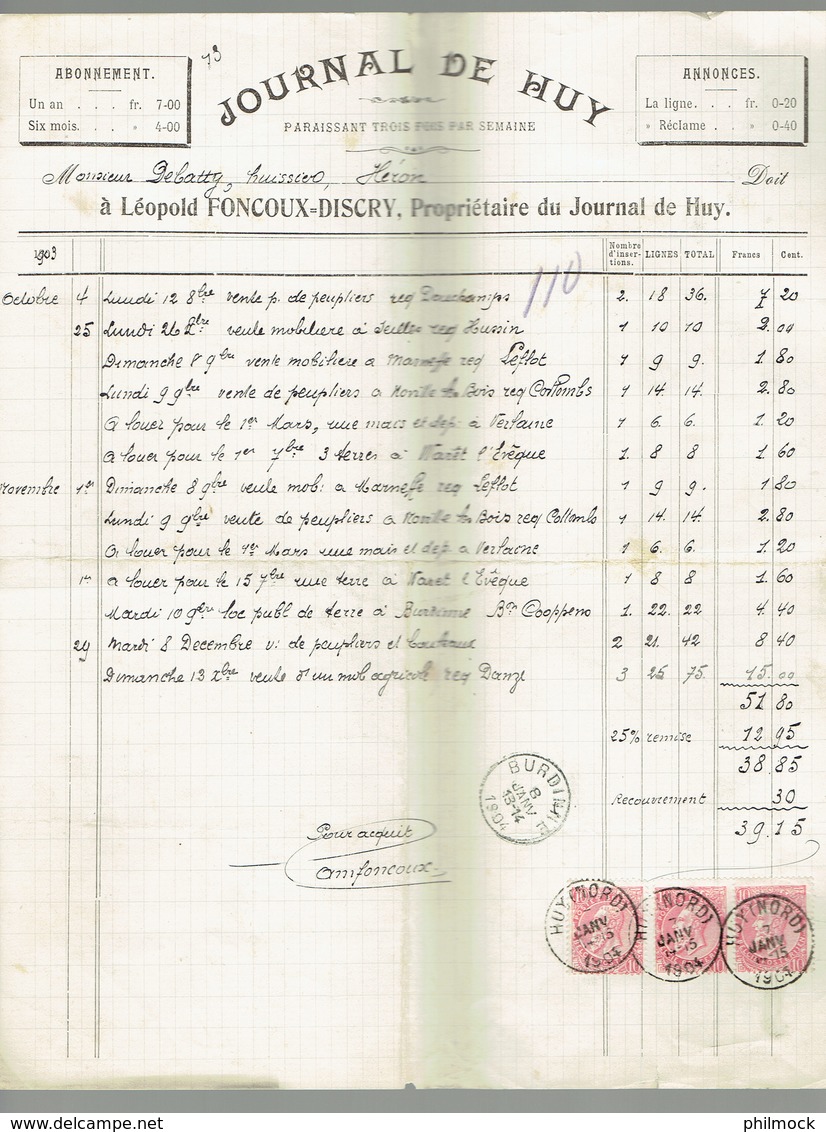 73
JOURNAL DE HUY
PARAISSANT TROIS FOIS PAR SEMAINE
ABONNEMENT.
Un an . . . fr. 7-00
Six mois. . . » 4-00
ANNONCES.
La ligne. . . fr. 0-20
» Réclame . » 0-40
Monsieur Debatty, huissier, Héron Doit
à Léopold FONCOUX=DISCRY, Propriétaire du Journal de Huy.
1903 Nombre d'inser-tions. LIGNES TOTAL Francs Cent.
110
Octobre 4 Lundi 12 8bre vente p. de peupliers req Douchamps 2. 18 36. 7 20
25 Lundi 26 vente mobiliere à req Hussin 1 10 10 2. 00
Dimanche 8 9bre vente mobiliere a Marneffe req Leflot 1 9 9. 1. 80
Lundi 9 9bre vente de peupliers a Noville les Bois req Collombs 1 14. 14. 2. 80
A louer pour le 1er Mars, une mais et dep. à Verlaine 1 6. 6. 1. 20
A louer pour le 1er 7bre 3 terres à Waret l'Evêque 1 8 8 1. 60
Novembre 1er Dimanche 8 9bre vente mob: a Marneffe req Leflot 1 9 9. 1 80
Lundi 9 9bre vente de peupliers a Noville les Bois req Collombs 1 14. 14. 2. 80
A louer pour le 1er Mars une mais et dep. a Verlaine 1 6. 6. 1. 20
1er A louer pour le 15 7bre une terre à Waret l'Evêque 1 8 8 1. 60
Mardi 10 9bre loc publ de terre à Burdinne Bon Cooppens 1. 22. 22 4. 40
29 Mardi 8 Decembre v: de peupliers et 2 21. 42 8 40
Dimanche 13 Xbre vente d'un mob agricole req Danze 3 25 75. 15. 00
51 80
25% remise 12 95
38 85
Recouvrement 30
39. 15
BURDINNE
8
JANV
13-14
1904
Pour acquit
Amfoncoux
HUY (NORD)
JANV
1904
HUY (NORD)
7
JANV
1904
HUY (NORD)
7
JANV
1904
10
10
philmock